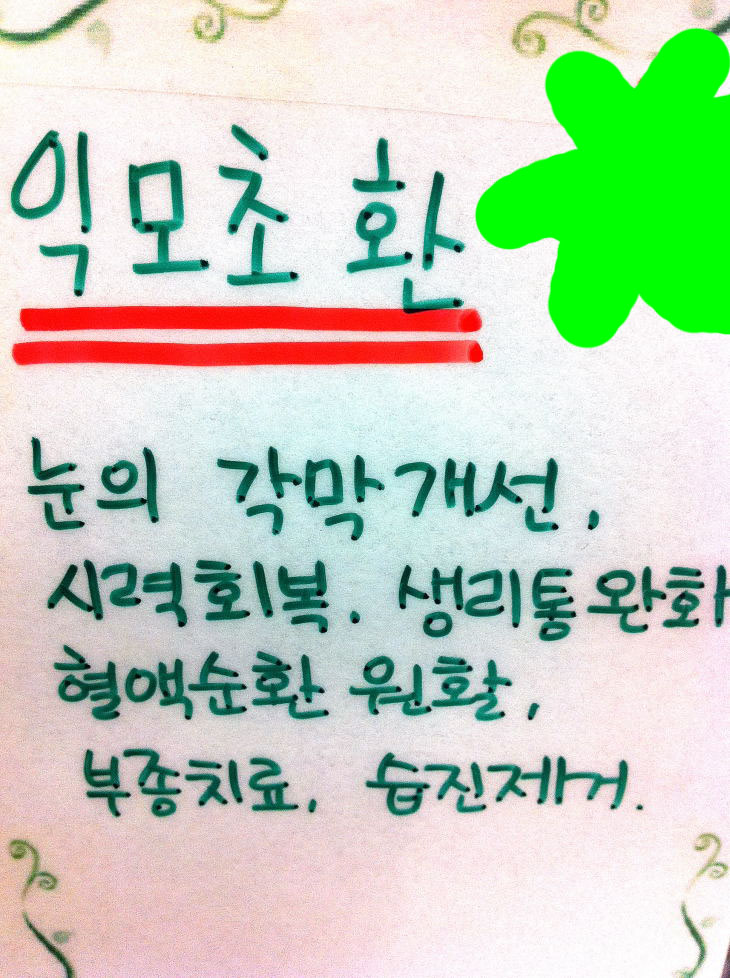 익모초 환
눈의 각막개선,
시력회복. 생리통완화
혈액순환 원활,
부종치료, 습진제거.